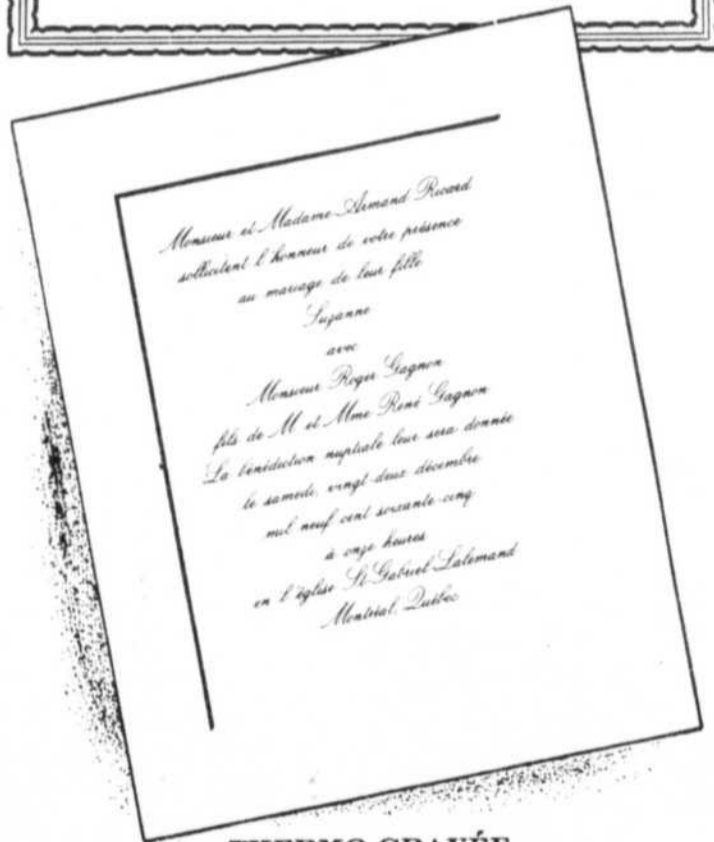 Monsieur et Madame Armand Ricard
sollicitent l'honneur de votre présence
au mariage de leur fille
Suzanne
avec
Monsieur Roger Gagnon
fils de M et Mme René Gagnon
La bénédiction nuptiale leur sera donnée
le samedi, vingt-deux décembre
mil neuf cent soixante-cinq
à onze heures
en l'église St-Gabriel Lalemand
Montréal, Québec
THERMO-GRAVÉE